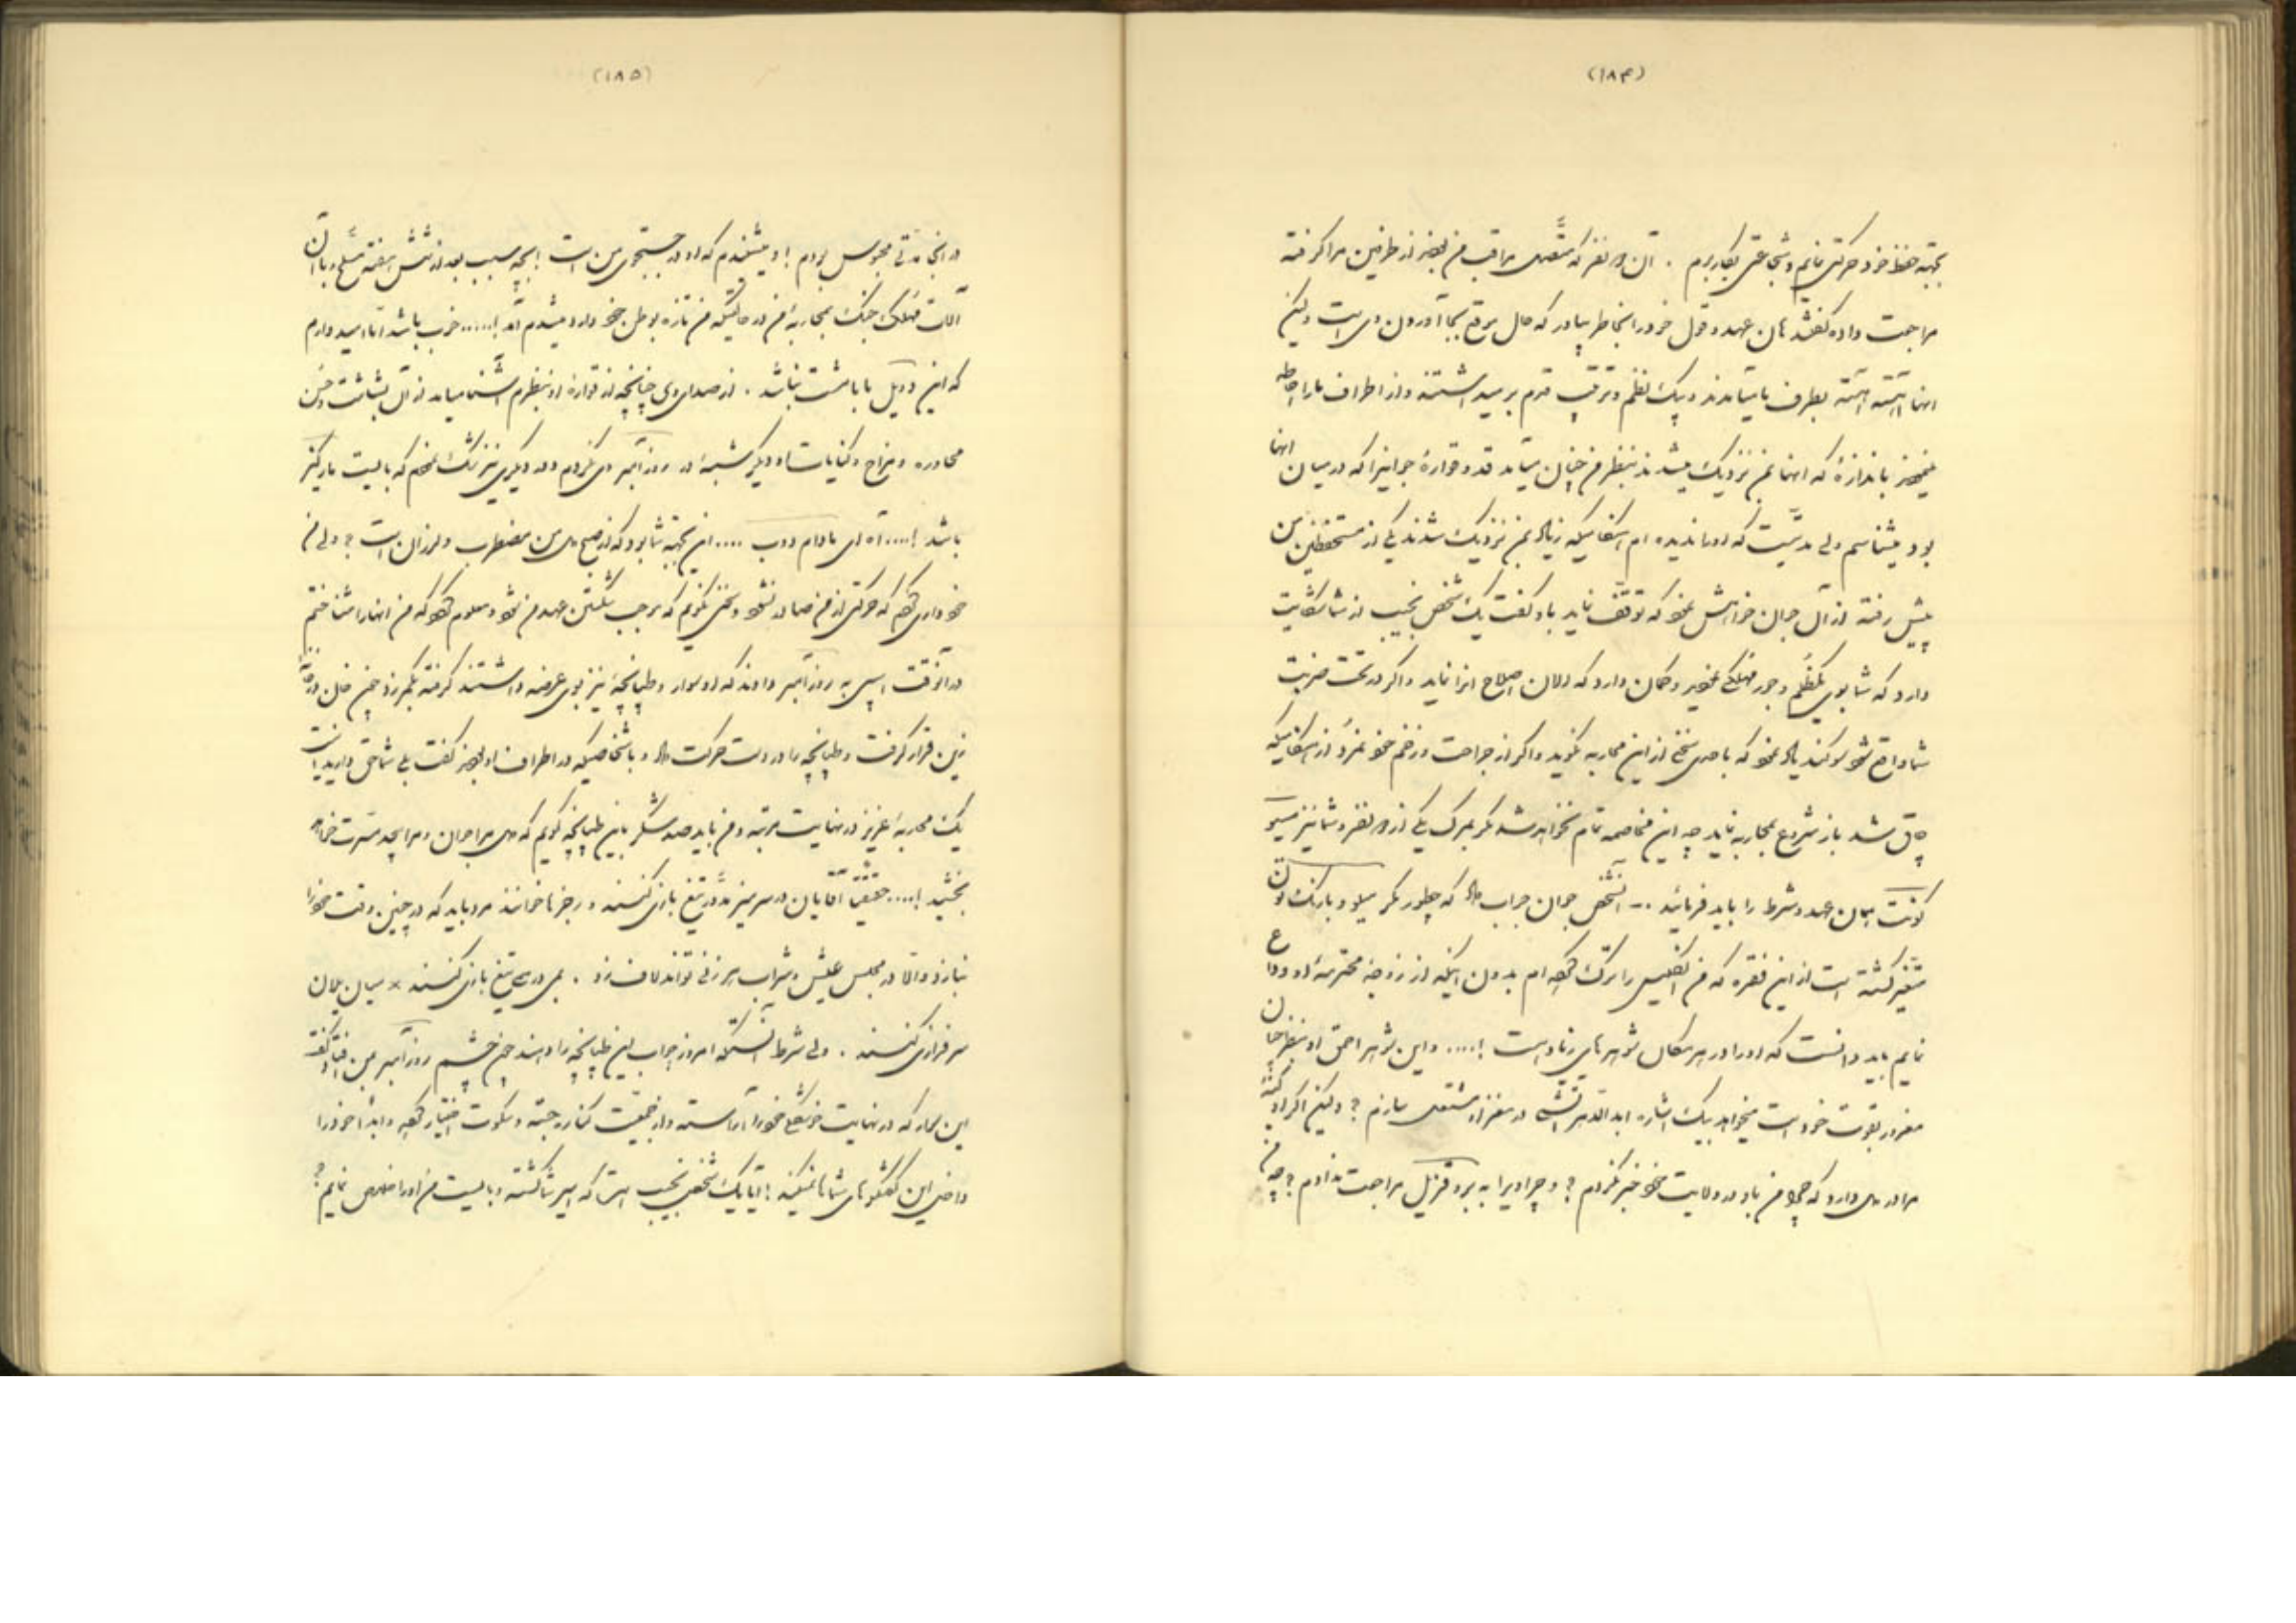 (۱۸۴)
بجهته حفظ خود حرکتی نمایم و شجاعتی بکار برم . آن دو نفر که متصدی مراقب من بودند از طرفین مرا گرفته
مراجعت داده گفتند همان عهد و قول خود را بخاطر بیاور که حال موقع بجا آوردن وی است ولیکن
اینها آهسته آهسته بطرف ما میآمدند و بیک نظم و ترتیب قدم بر میداشتند و از اطراف ما را احاطه
باندازهٔ که اینها بمن نزدیک میشدند بنظر من چنان میآمد قد و قوارهٔ جوانیرا که در میان اینها
بود میشناسم ولی مدتیست که او را ندیده ام اشخاصیکه زیاد بمن نزدیک شدند یکی از مستحفظین من
پیش رفته از آن جوان خواهش نمود که توقف نماید باو گفت یک شخص نجیب از شما شکایت
دارد که شما بوی ظلم و جور مهلکی نموده‌اید و گمان دارد که الان اصلاح آنرا نماید و اگر در تحت ضربت
شما واقع شود سوگند یاد نمود که باحدی سخنی از این محاربه نگوید و اگر از جراحت و زخم خود نمرد از اشخاصیکه
چاق شد باز شروع بمحاربه نماید چه این مخاصمه تمام نخواهد شد مگر بمرگ یکی از دو نفر و شما نیز مسیو
کونت همان عهد و شرط را باید فرمائید .– آنشخص جوان جواب داد که چطور مگر میلورد بارنک تون
متغیر گشته است از این فقره که من انگلیس را ترک کرده ام بدون اینکه از زوجهٔ محترمهٔ او وداع
نمایم باید دانست که او را در هر مکان شوهرهای زیاد است !.... و این شوهر احمق او بنظر چنان
مغرور بقوت خود است میخواهد بیک اشاره ابدا آتشی در مغز او مشتعل سازم ؟ ولیکن اگر او کینهٔ
مرا در دل دارد که چرا من باو در ولایت خود خبر نکردم ؟ و چرا ویرا به برد فزیل مراجعت ندادم ؟ چه من
(۱۸۵)
در آنجا مدتی محبوس بودم ! و میشنیدم که او در جستجوی من است ! بچه سبب بعد از شش هفته مسلح و با آن
آلات مهلک جنگ بمحاربهٔ من در حالتیکه من تازه بوطن خود وارد میشدم آمد !..... خوب باشد اما امیدوارم
که این دویل با بامشت نباشد . از صدای وی چنانچه از قوارهٔ او بنظرم آشنا میآمد از آن بشاشت و حسن
محاوره و مزاح و کنایات او دیگر شبهه در روزآمبر وی نکردم و در دیگری نیز شک نمودم که بایست مارکیز
باشد !.... آه ای مادام دوب .... این بجهته شما بود که از صبح دل من مضطرب و لرزان است ؟ ولی من
خود داری کردم که حرکتی از من صادر نشود و سخنی نگویم که موجب شکستن عهد من شود و معلوم کرد که من اینها را شناختم
در آنوقت اسبی به روزآمبر دادند که او سوار و طپانچهٔ نیز بوی عرضه داشتند گرفته بکمر زد چون
زین قرار گرفت و طپانچه را در دست حرکت داد و باشخاصیکه در اطراف او بودند گفت بلی شما حق دارید این است
یک محاربهٔ عزیز در نهایت مرتبه و من باید صد شکر باین طپانچه گویم که دل مرا جوان و مرا بحد مسرت
بخشید !.... حقیقتاً آقایان در سر میز مدور تیغ بازی کنند و رجزها خوانند مرد باید که در چنین وقت خود را
نبازد و الا در مجلس عیش و شراب هر زنی تواند لاف زد . بلی در صبح تیغ بازی کنند × میان یلان
سرفرازی کنند . ولی شرط آنستکه امروز جواب این طپانچه را دهند چون چشم روزآمبر بمن افتاد گفت
این سوار که در نهایت خوشگلی خود را آراسته و از جمعیت کناره جسته و سکوت اختیار کرده و ابداً خود را
داخل این گفتگوهای شما نمیکند ! آیا یک شخص نجیب است که اسیر شما گشته و بایست من او را خلاص نمایم ؟